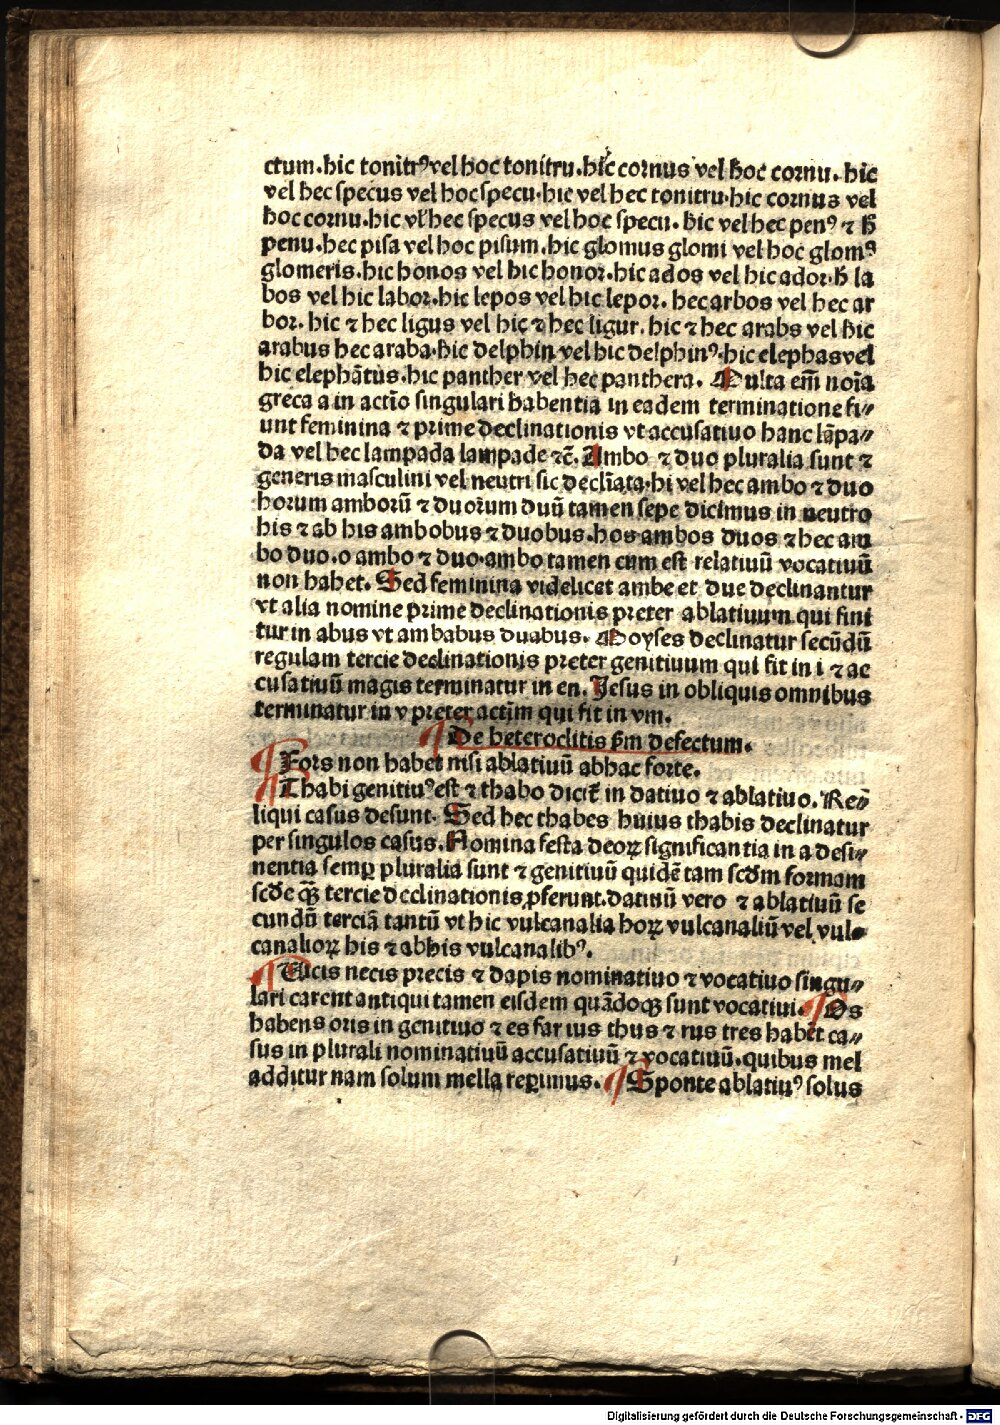 ctum.hic tonitrꝰ vel hoc tonitru.hic cornus vel hoc cornu.hic
vel hec specus vel hoc specu.hic vel hec tonitru.hic cornus vel
hoc cornu.hic vl̕ hec specus vel hoc specu.hic vel hec penꝰ ⁊ h̄
penu.hec pisa vel hoc pisum.hic glomus glomi vel hoc glomꝰ
glomeris.hic honos vel hic honor.hic ados vel hic ador.h̄ la
bos vel hic labor.hic lepos vel hic lepor. hec arbos vel hec ar
bor. hic ⁊ hec ligus vel hic ⁊ hec ligur. hic ⁊ hec arabs vel hic
arabus hec araba.hic delphin vel hic delphinꝰ.hic elephas vel
hic elephātus.hic panther vel hec panthera. Multa em̄ noīa
greca a in actīo singulari habentia in eadem terminatione fi⸗
unt feminina ⁊ prime declinationis vt accusatiuo hanc lāpa⸗
da vel hec lampada lampade ⁊c̄. Ambo ⁊ duo pluralia sunt ⁊
generis masculini vel neutri sic declīata.hi vel hec ambo ⁊ duo
horum amborū ⁊ duorum duū tamen sepe dicimus in neutro
his ⁊ ab his ambobus ⁊ duobus.hos ambos duos ⁊ hec am
bo duo.o ambo ⁊ duo.ambo tamen cum est relatiuū vocatiuū
non habet. Sed feminina videlicet ambe et due declinantur
vt alia nomine prime declinationis preter ablatiuum qui fini
tur in abus vt ambabus duabus. Moyses declinatur secūdū
regulam tercie declinationis preter genitiuum qui fit in i ⁊ ac
cusatiuū magis terminatur in en. Jesus in obliquis omnibus
terminatur in v preter actīm qui fit in vm.
De heteroclitis ẜm defectum.
Fors non habet nisi ablatiuū ab hac forte.
Thabi genitiuꝰ est ⁊ thabo dicit̄ in datiuo ⁊ ablatiuo. Re⸗
liqui casus desunt. Sed hec thabes huius thabis declinatur
per singulos casus. Nomina festa deoꝝ significantia in a desi⸗
nentia semꝑ pluralia sunt ⁊ genitiuū quidē tam scd̄m formam
scd̄e qꝫ̄ tercie declinationis ꝓferunt.datiuū vero ⁊ ablatiuū se
cundū terciā tantū vt hic vulcanalia hoꝝ vulcanaliū vel vul⸗
canalioꝝ his ⁊ ab his vulcanalibꝰ.
Uicis necis precis ⁊ dapis nominatiuo ⁊ vocatiuo singu⸗
lari carent antiqui tamen eisdem quādoqꝫ sunt vocatiui. Os
habens oris in genitiuo ⁊ es far ius thus ⁊ rus tres habēt ca⸗
sus in plurali nominatiuū accusatiuū ⁊ vocatiuū.quibus mel
additur nam solum mella reꝑimus. Sponte ablatiuꝰ solus
Digitalisierung gefördert durch die Deutsche Forschungsgemeinschaft - DFG